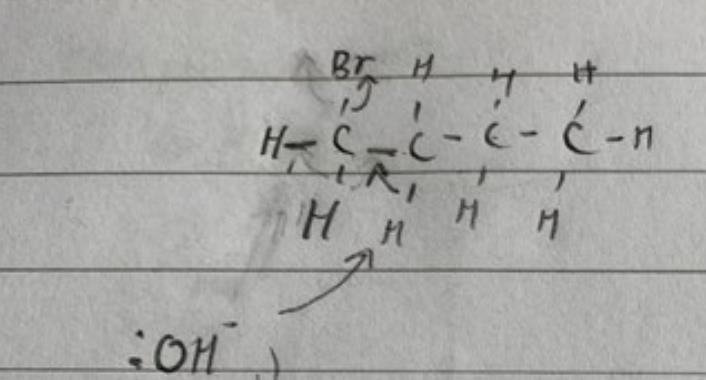 Br H H H
H - C - C - C - C - H
H H H H
:OH⁻